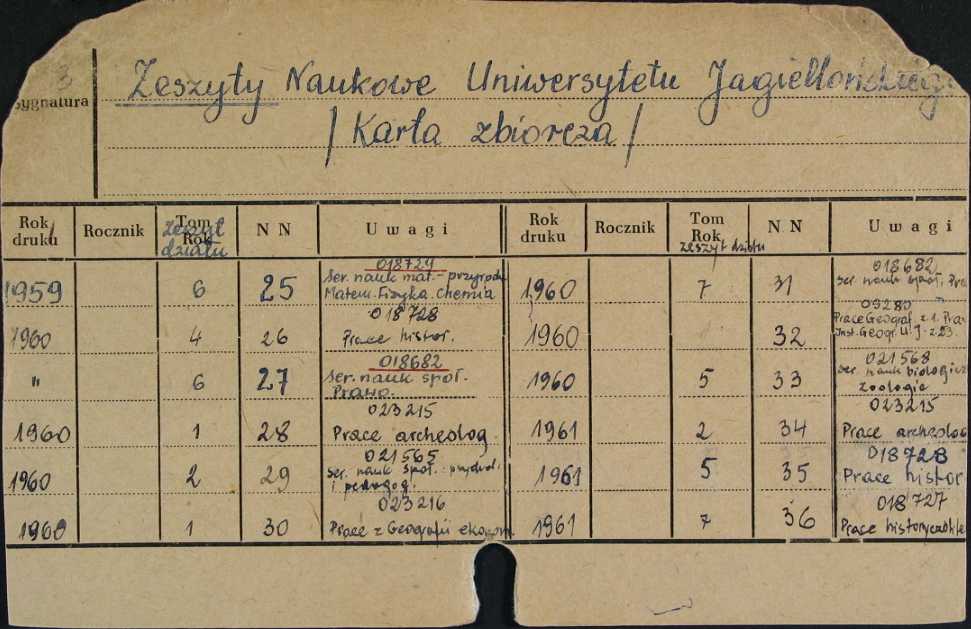 Zeszyty Naukowe Uniwersytetu Jagiellońskieg
/Karta zbiorcza/
Sygnatura
Rok druku Rocznik Tom Rok Zeszyt działu NN Uwagi Rok druku Rocznik Tom Rok zeszyt działu NN Uwagi
1959 6 25 018729 Ser. nauk mat.-przyrodn Matem. Fizyka. Chemia
1960 4 26 018728 Prace histor.
" 6 27 018682 Ser. nauk społ. Prawo.
1960 1 28 023215 Prace archeolog.
1960 2 29 021565 Ser. nauk społ. i pedagog.
1960 1 30 023216 Prace z Geografii ekonom.
1960 7 31 018682 Ser. nauk społ.
1960 32 09280 Prace Geograf. z. 1. Inst. Geogr. U J - z 23.
1960 5 33 021568 Ser. nauk biologicz zoologia
1961 2 34 023215 Prace archeolog
1961 5 35 018728 Prace histor
1961 7 36 018727 Prace historyczno